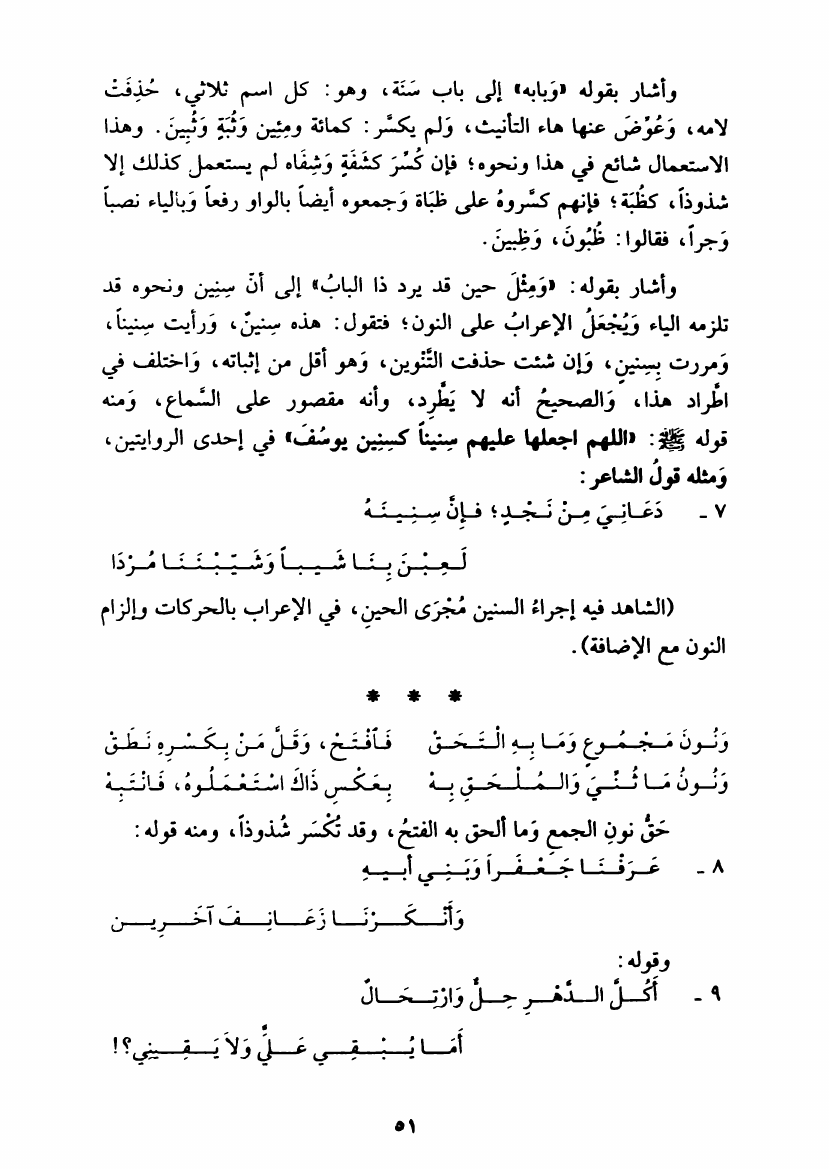 وأشار بقوله «وَبابه» إلى باب سَنَة، وهو: كل اسم ثلاثي، حُذِفَتْ
لامه، وَعُوِّضَ عنها هاء التأنيث، وَلم يكسَّر: كمائة ومِئِين وَثُبَةٍ وَثُبِينَ. وهذا
الاستعمال شائع في هذا ونحوه؛ فإن كُسِّرَ كشَفَةٍ وَشِفَاه لم يستعمل كذلك إلا
شذوذاً، كظُبَة؛ فإنهم كسَّروهُ على ظبَاة وَجمعوه أيضاً بالواو رفعاً وَبالياء نصباً
وَجراً، فقالوا: ظُبُونَ، وَظِبينَ.
وأشار بقوله: «وَمِثْلَ حين قد يرد ذا البابُ» إلى أنّ سِنِين ونحوه قد
تلزمه الياء وَيُجْعَلُ الإعرابُ على النون؛ فتقول: هذه سِنينٌ، وَرأيت سِنيناً،
وَمررت بِسِنينٍ، وَإن شئت حذفت التَّنْوين، وَهو أقل من إثباته، وَاختلف في
اطِّراد هذا، وَالصحيحُ أنه لا يَطَّرِد، وأنه مقصور على السَّماع، وَمنه
قوله ﷺ: «اللهم اجعلها عليهم سِنيناً كسِنِين يوسُفَ» في إحدى الروايتين،
وَمثله قولُ الشاعر:
٧ - دَعَانِيَ مِنْ نَجْدٍ؛ فَإِنَّ سِنِينَهُ
لَعِبْنَ بِنَا شَيباً وَشَيَّبْنَنَا مُرْدَا
(الشاهد فيه إجراءُ السنين مُجْرَى الحينِ، في الإعراب بالحركات وإلزام
النون مع الإضافة).
* * *
وَنُونَ مَجْمُوعٍ وَمَا بِهِ الْتَحَقْ فَافْتَحْ، وَقَلَّ مَنْ بِكَسْرِهِ نَطَقْ
وَنُونُ مَا ثُنِّيَ وَالمُلْحَقِ بِهْ بِعَكْسِ ذَاكَ اسْتَعْمَلُوهُ، فَانْتَبِهْ
حَقُّ نونِ الجمعِ وَما ألحق به الفتحُ، وقد تُكْسَر شُذوذاً، ومنه قوله:
٨ - عَرَفْنَا جَعْفَراً وَبَنِي أبيهِ
وَأَنْكَرْنَا زَعَانِفَ آخَرِين
وقوله:
٩ - أَكُلَّ الدَّهْرِ حِلٌّ وَارْتِحَالٌ
أَمَا يُبْقِي عَلَيَّ وَلاَ يَقِينِي؟!
٥١